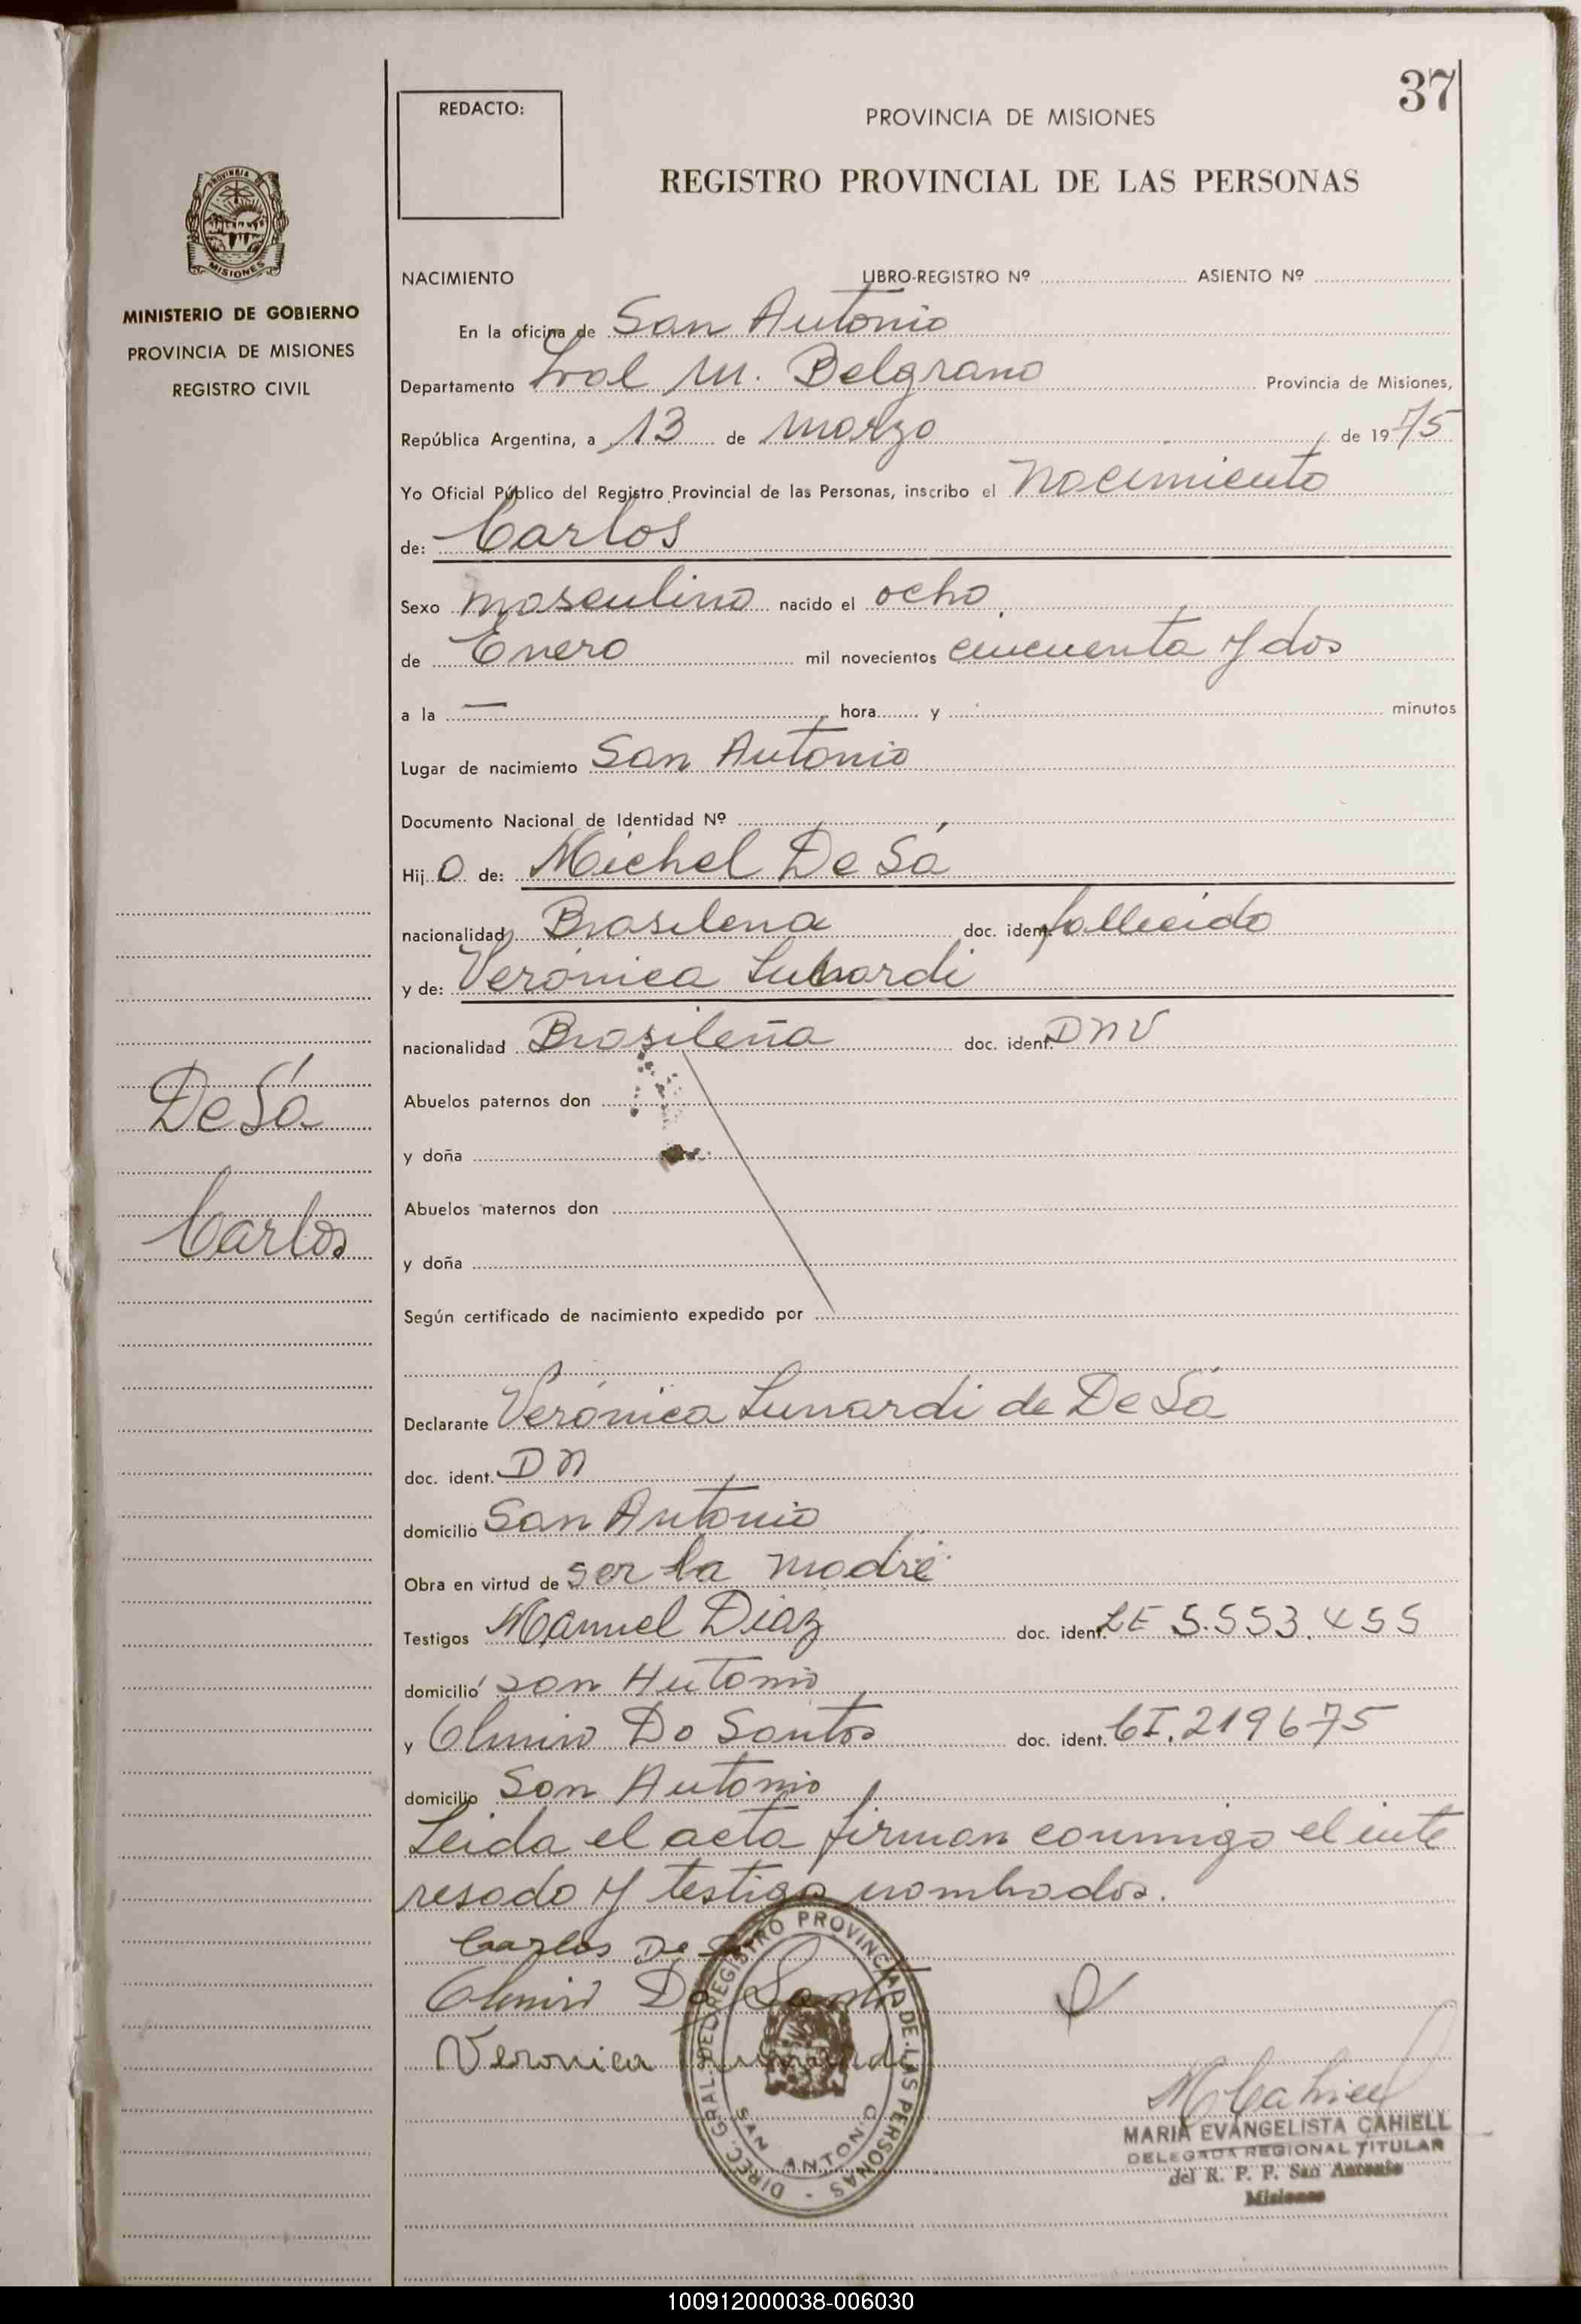 37
REDACTO:
PROVINCIA DE MISIONES
REGISTRO PROVINCIAL DE LAS PERSONAS
PROVINCIA DE
MISIONES
MINISTERIO DE GOBIERNO
PROVINCIA DE MISIONES
REGISTRO CIVIL
NACIMIENTO LIBRO-REGISTRO Nº ASIENTO Nº
En la oficina de San Antonio
Departamento Gral M. Belgrano Provincia de Misiones,
República Argentina, a 13 de Marzo de 1975
Yo Oficial Público del Registro Provincial de las Personas, inscribo el nacimiento
de: Carlos
Sexo masculino nacido el ocho
de Enero mil novecientos cincuenta y dos
a la — hora y minutos
Lugar de nacimiento San Antonio
Documento Nacional de Identidad Nº
Hijo de: Michel De Sá
nacionalidad Brasilena doc. ident. fallecido
y de: Verónica Lunardi
nacionalidad Brasileña doc. ident. DNV
Abuelos paternos don
y doña
Abuelos maternos don
y doña
De Sá
Carlos
Según certificado de nacimiento expedido por
Declarante Verónica Lunardi de De Sá
doc. ident. DN
domicilio San Antonio
Obra en virtud de ser la madre
Testigos Manuel Diaz doc. ident. LE 5.553.455
domicilio San Antonio
y Do Santos doc. ident. CI. 219675
domicilio San Antonio
Leida el acta firman conmigo el inte
resado y testigo nombrados.
Carlos De Sá
Do Santo
Veronica Lunardi
DIREC. GRAL. DEL REGISTRO PROVINCIAL DE LAS PERSONAS
SAN ANTONIO
M Cahiell
MARIA EVANGELISTA CAHIELL
DELEGADA REGIONAL TITULAR
del R. P. P. San Antonio
Misiones
100912000038-006030